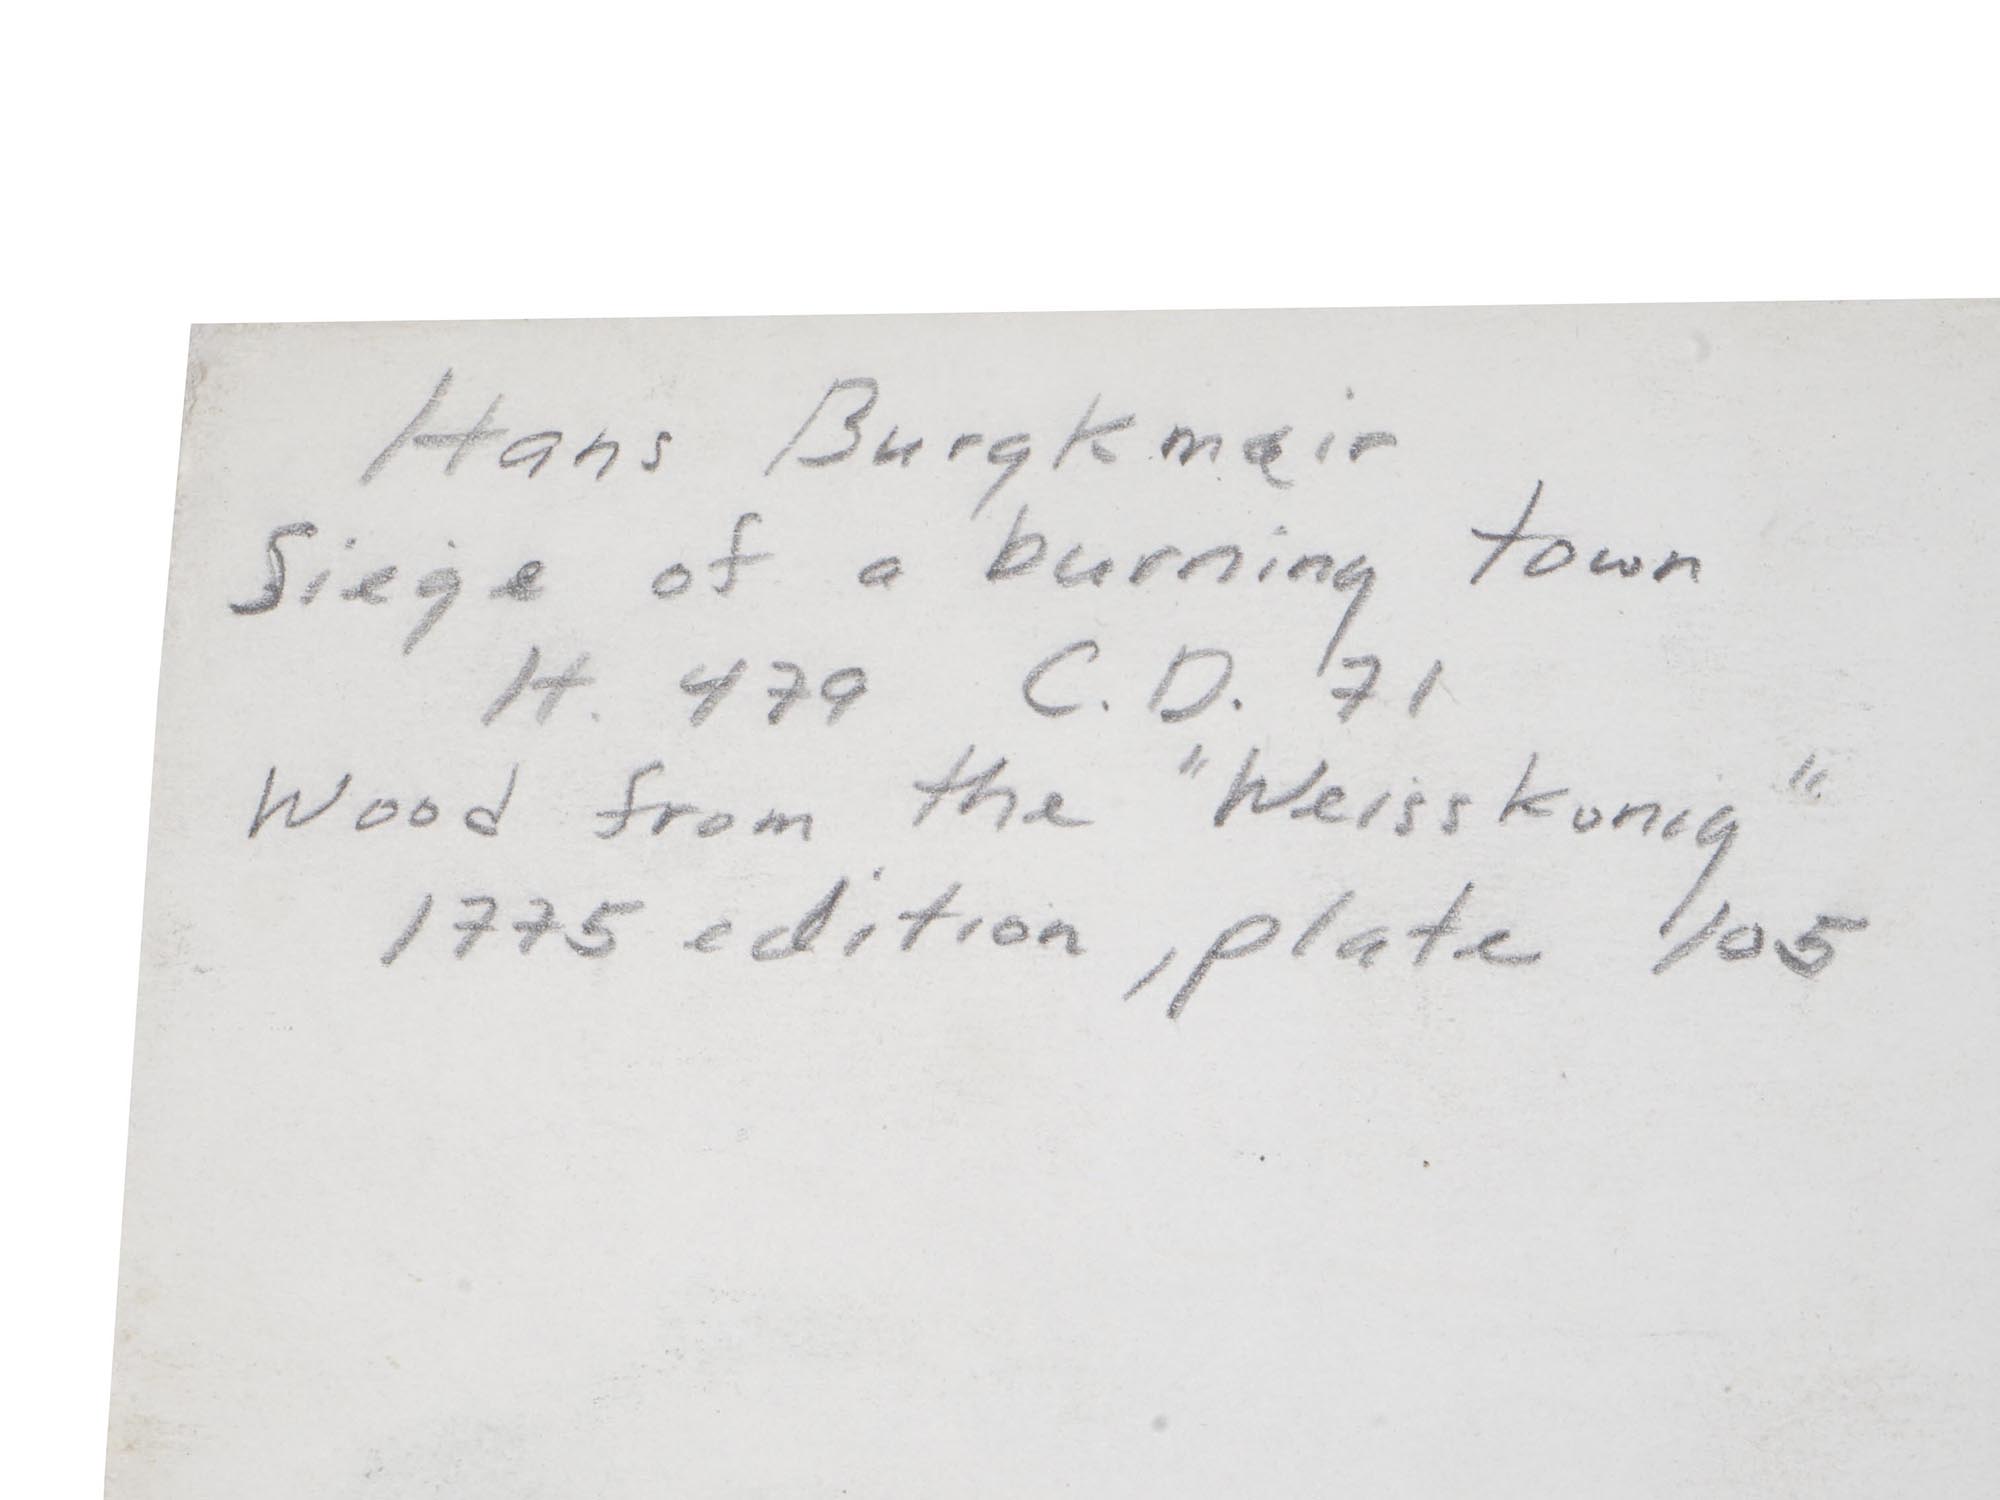 Hans Burgkmair
Siege of a burning town
H. 479 C.D. 71
Wood from the "Weisskonig"
1775 edition, plate 105